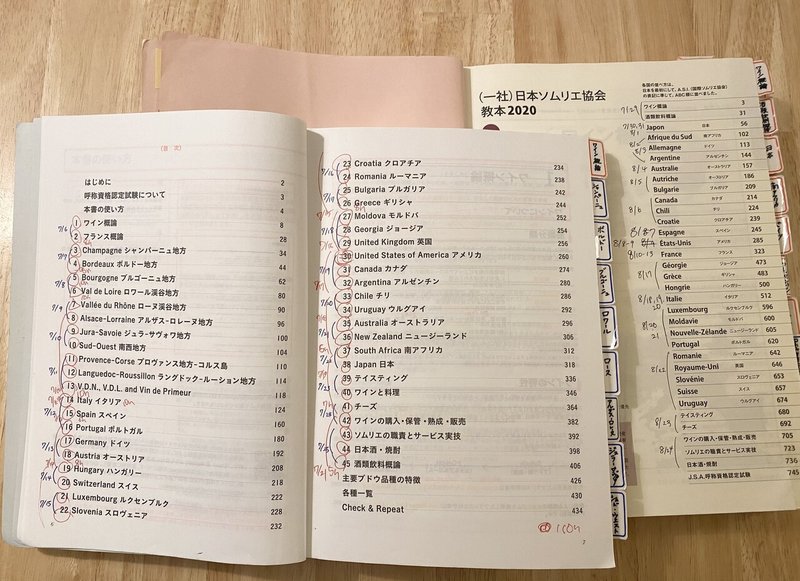 (目 次)
はじめに 2
呼称資格認定試験について 3
本書の使い方 4
1 ワイン概論 8
2 フランス概論 28
3 Champagne シャンパーニュ地方 34
4 Bordeaux ボルドー地方 44
5 Bourgogne ブルゴーニュ地方 62
6 Val de Loire ロワール渓谷地方 80
7 Vallée du Rhône ローヌ渓谷地方 90
8 Alsace-Lorraine アルザス-ロレーヌ地方 96
9 Jura-Savoie ジュラ-サヴォワ地方 100
10 Sud-Ouest 南西地方 104
11 Provence-Corse プロヴァンス地方-コルス島 110
12 Languedoc-Roussillon ラングドック-ルーション地方 114
13 V.D.N., V.D.L. and Vin de Primeur 118
14 Italy イタリア 124
15 Spain スペイン 160
16 Portugal ポルトガル 184
17 Germany ドイツ 192
18 Austria オーストリア 208
19 Hungary ハンガリー 218
20 Switzerland スイス 222
21 Luxembourg ルクセンブルク 228
22 Slovenia スロヴェニア 232
23 Croatia クロアチア 234
24 Romania ルーマニア 238
25 Bulgaria ブルガリア 242
26 Greece ギリシャ 244
27 Moldova モルドバ 252
28 Georgia ジョージア 254
29 United Kingdom 英国 256
30 United States of America アメリカ 260
31 Canada カナダ 274
32 Argentina アルゼンチン 280
33 Chile チリ 286
34 Uruguay ウルグアイ 292
35 Australia オーストラリア 296
36 New Zealand ニュージーランド 304
37 South Africa 南アフリカ 312
38 Japan 日本 318
39 テイスティング 336
40 ワインと料理 346
41 チーズ 364
42 ワインの購入・保管・熟成・販売 382
43 ソムリエの職責とサービス実技 392
44 日本酒・焼酎 398
45 酒類飲料概論 406
主要ブドウ品種の特徴 426
各種一覧 430
Check & Repeat 434
(一社)日本ソムリエ協会
教本2020
各国の並べ方は、
日本を最初にして、A.S.I.(国際ソムリエ協会)
の表記に準じて、ABC順に並べました。
ワイン概論 3
酒類飲料概論 31
Japon 日本 56
Afrique du Sud 南アフリカ 102
Allemagne ドイツ 113
Argentine アルゼンチン 144
Australie オーストラリア 157
Autriche オーストリア 186
Bulgarie ブルガリア 209
Canada カナダ 214
Chili チリ 224
Croatie クロアチア 239
Espagne スペイン 245
États-Unis アメリカ 285
France フランス 323
Géorgie ジョージア 473
Grèce ギリシャ 483
Hongrie ハンガリー 500
Italie イタリア 512
Luxembourg ルクセンブルグ 596
Moldavie モルドバ 600
Nouvelle-Zélande ニュージーランド 605
Portugal ポルトガル 620
Romanie ルーマニア 642
Royaume-Uni 英国 646
Slovénie スロヴェニア 653
Suisse スイス 657
Uruguay ウルグアイ 674
テイスティング 680
チーズ 692
ワインの購入・保管・熟成・販売 705
ソムリエの職責とサービス実技 723
日本酒・焼酎 736
J.S.A.呼称資格認定試験 745
ワイン概論
ボルドー
ブルゴーニュ
ロワール
ローヌ